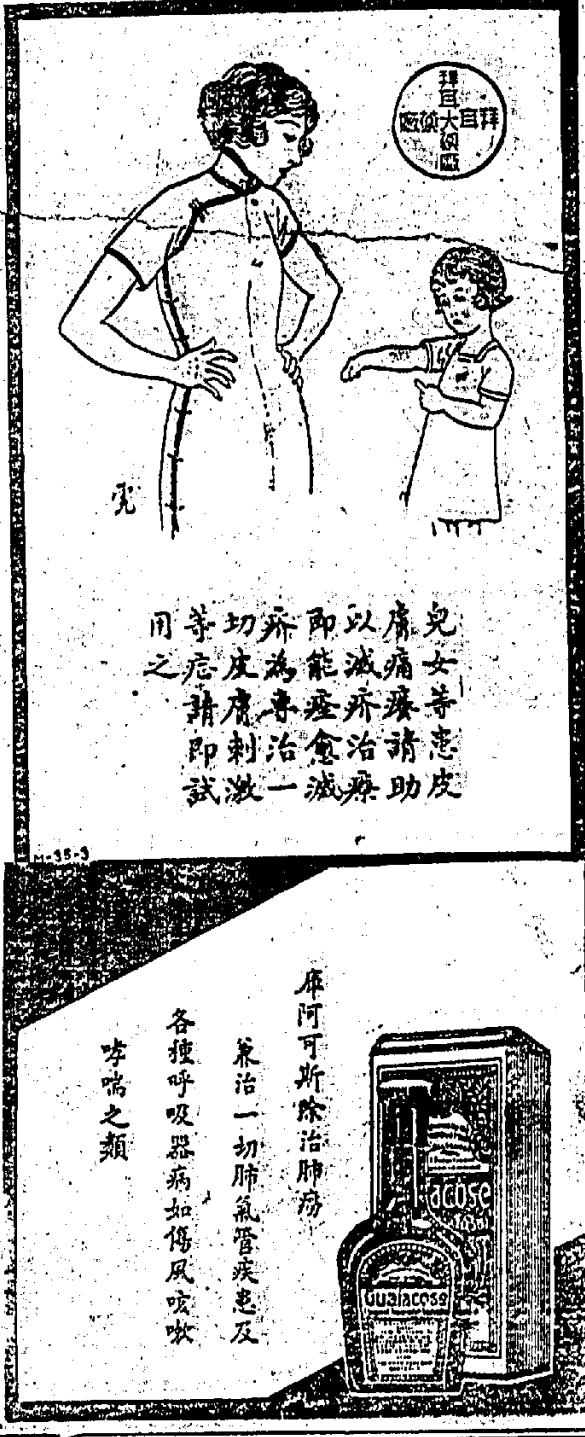 拜耳大
拜耳
兒女等患皮
膚痛癢請助
以滅疥治療
即能痊愈滅
疥為專治一
切皮膚刺激
等請即試
用之
M-35-3
阿可斯除治肺癆
兼治一切肺氣管疾患及
各種呼吸器病如傷風咳嗽
哮喘之類
acose
Guaiacose